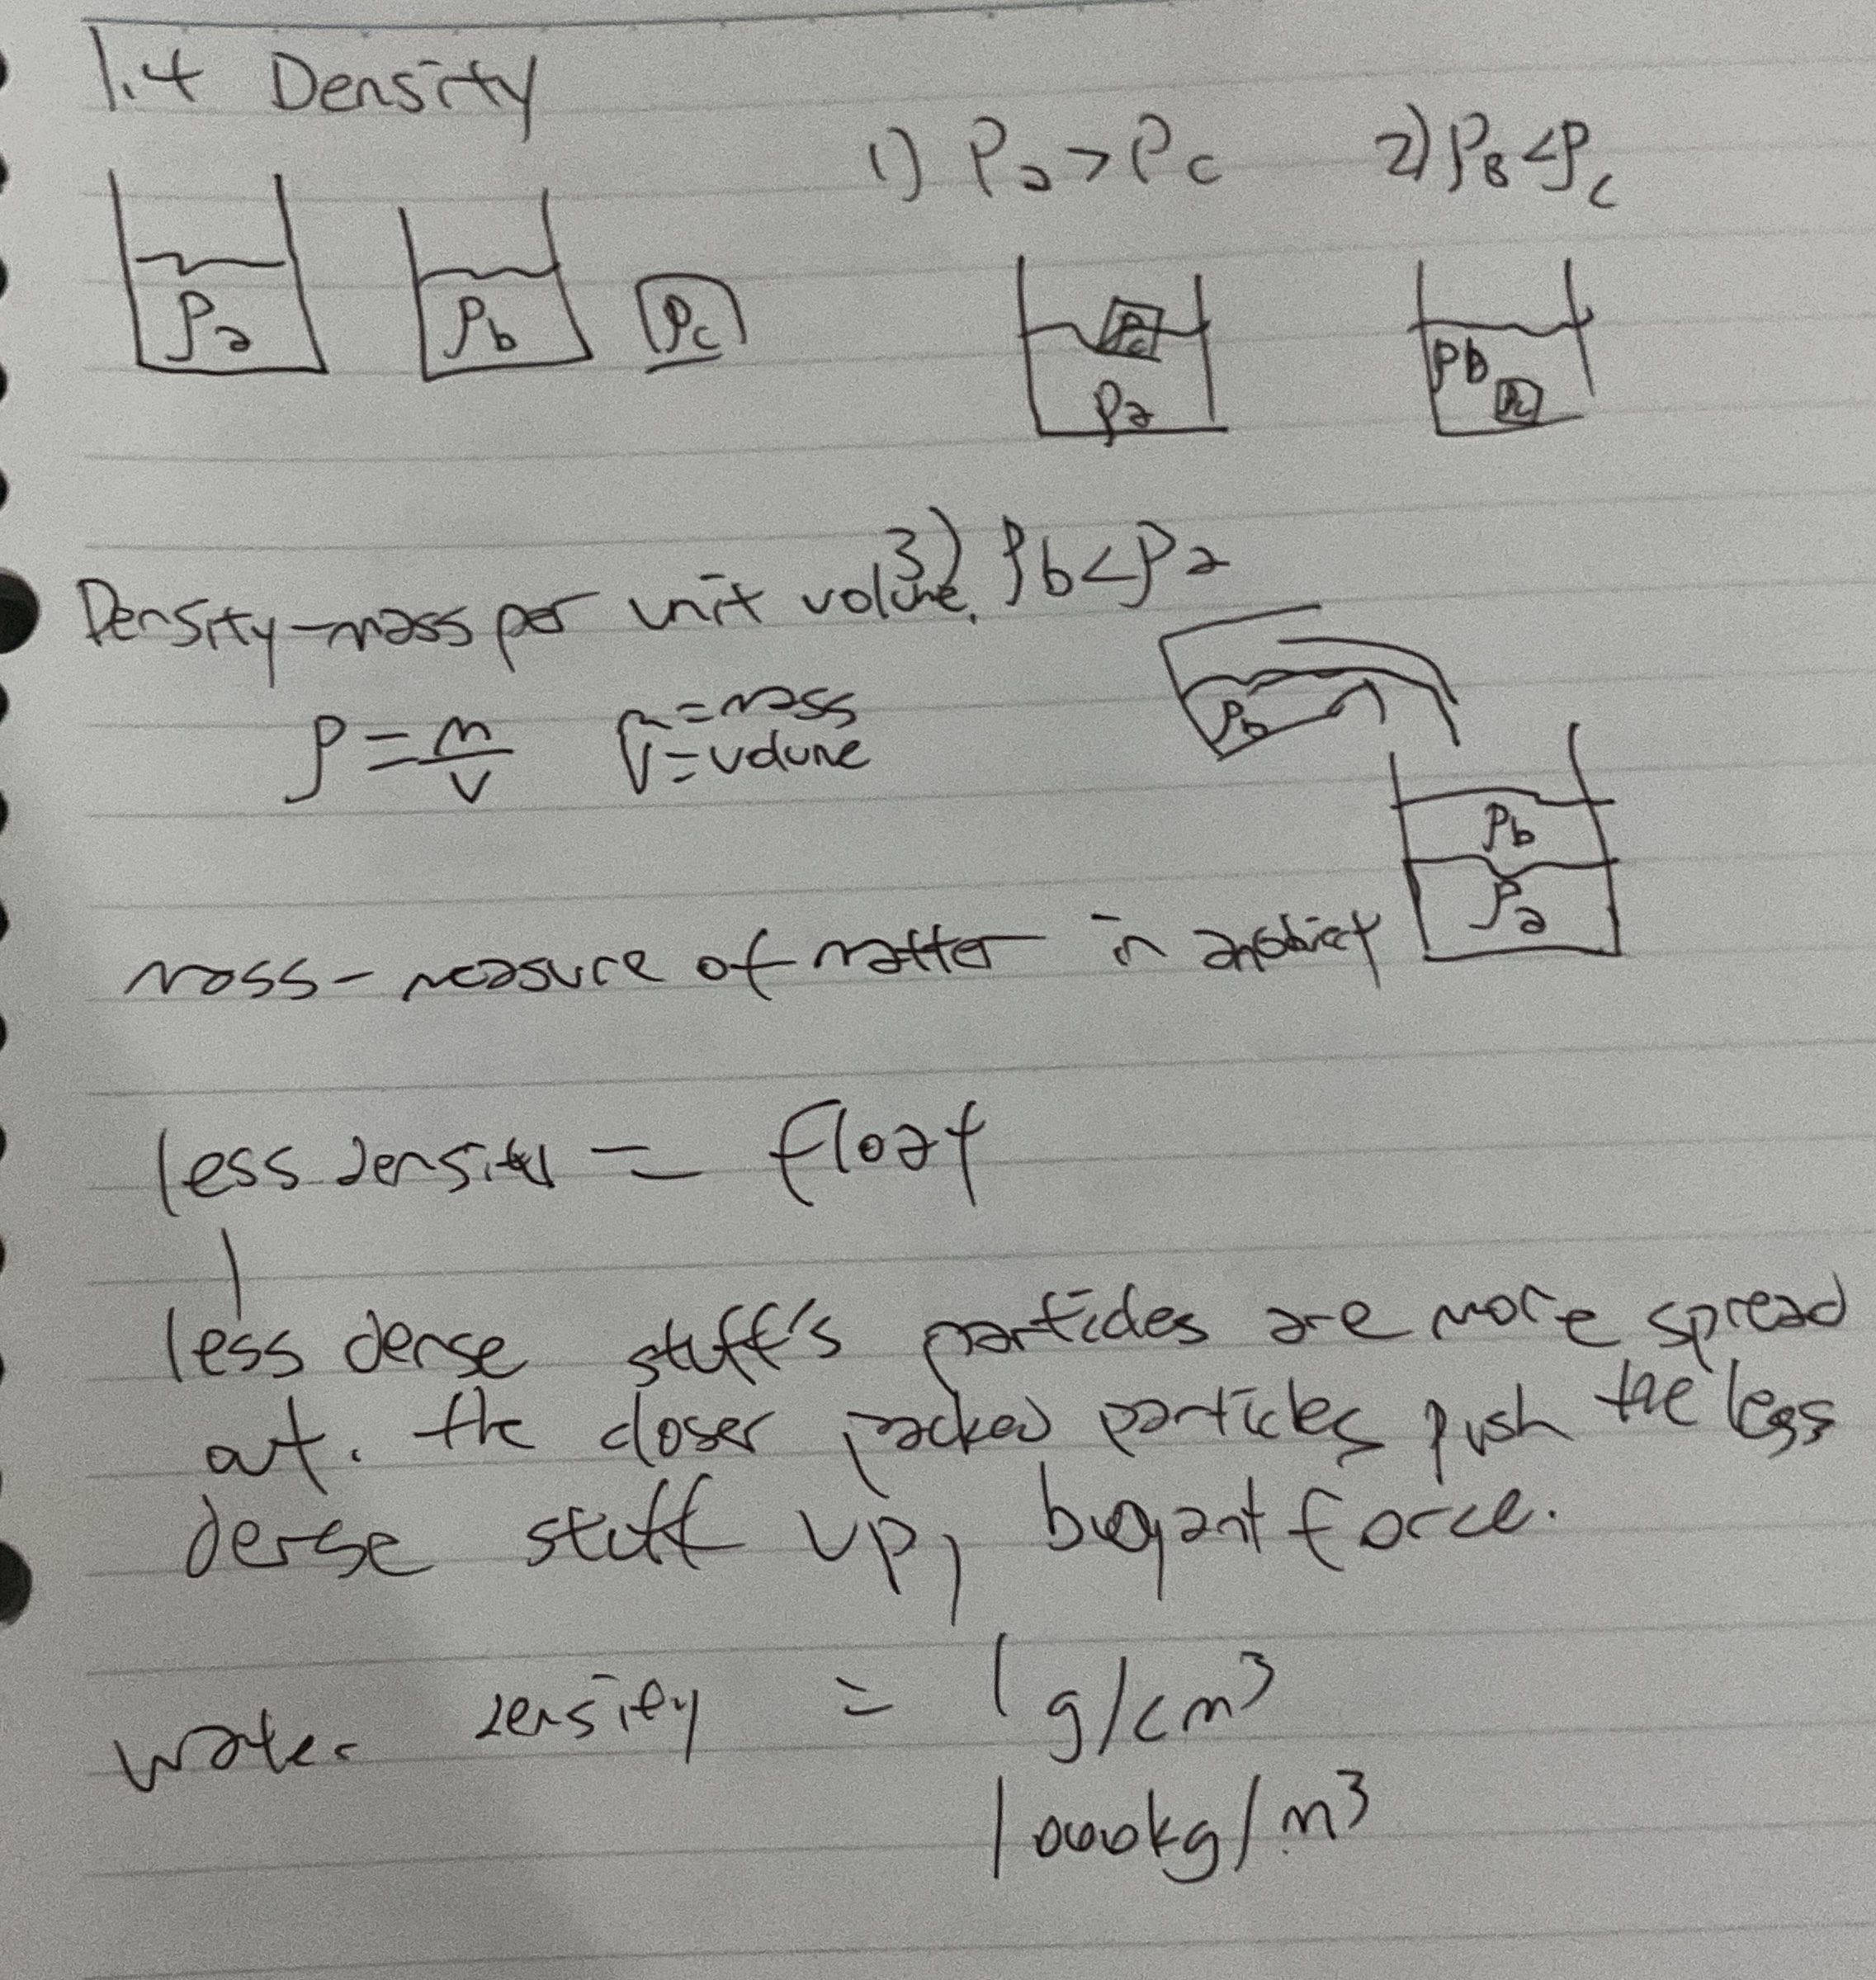 1.4 Density
1) ρa > ρc
2) ρB < ρc
ρa
ρb
ρc
ρc
ρa
ρb
ρc
3) ρb < ρa
Density - mass per unit volume.
ρ = m/v
m = mass
V = volume
ρb
ρb
ρa
mass - measure of matter in an object
less density = float
less dense stuff's particles are more spread
out. the closer packed particles push the less
dense stuff up, buoyant force.
water density = 1 g/cm³
1000kg/m³